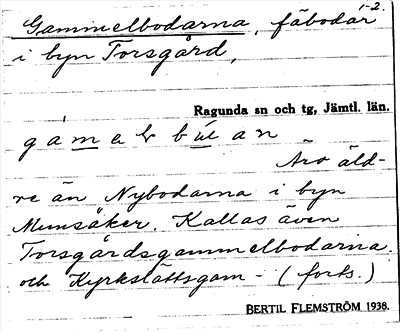 1-2.
Gammelbodarna, fäbodar
i byn Torsgård,
Ragunda sn och tg, Jämtl. län.
Äro äld-
re än Nybodarna i byn
Munsåker. Kallas även
Torsgårdsgammelbodarna
och Kyrkslättsgam- (forts.)
BERTIL FLEMSTRÖM 1938.